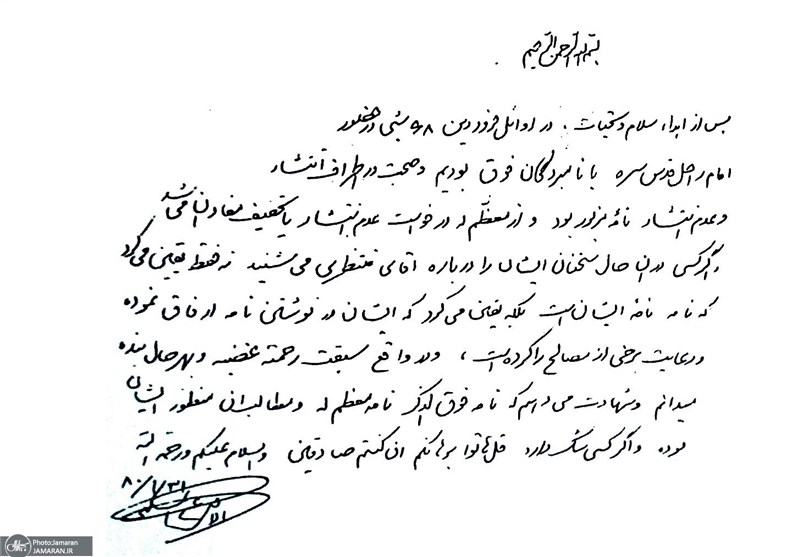 بسم الله الرحمن الرحیم
پس از اهداء سلام و تحیات، در اوائل فروردین ۶۸ شبی در حضور
امام راحل قدس سره با نامبردگان فوق بودیم و صحبت در اطراف انتشار
و عدم انتشار نامهٔ مزبور بود و از معظّم له درخواست عدم انتشار یا تخفیف مفاد آن می شد
و اگر کسی در آن حال سخنان ایشان را درباره آقای منتظری می شنید نه فقط یقین می کرد
که نامه نامهٔ ایشان است بلکه یقین می کرد که ایشان در نوشتن نامه ارفاق نموده
و رعایت برخی از مصالح را کرده است، و در واقع سبقت رحمته غضبه و بهرحال بنده
میدانم و شهادت می دهم که نامه فوق الذکر نامه معظم له و مطالب آن منظور ایشان
بوده و اگر کسی شک دارد قل هاتوا برهانکم ان کنتم صادقین والسلام علیکم و رحمة الله
۸۰/۱/۳۱
Photo:Jamaran
JAMARAN.IR